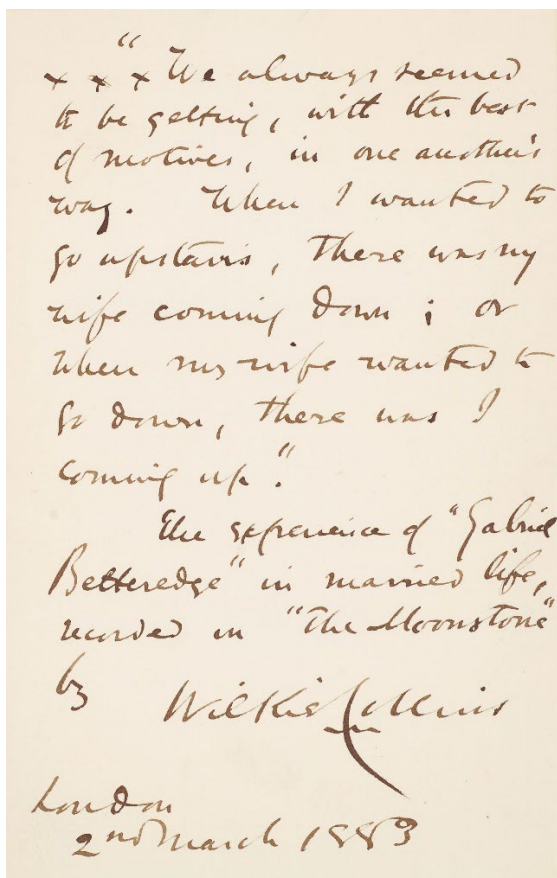 x x x "We always seemed
to be getting, with the best
of motives, in one another's
way. When I wanted to
go upstairs, there was my
wife coming down; or
when my wife wanted to
go down, there was I
coming up."
The experience of "Gabriel
Betteredge" in married life,
recorded in "The Moonstone"
by Wilkie Collins
London
2nd March 1883